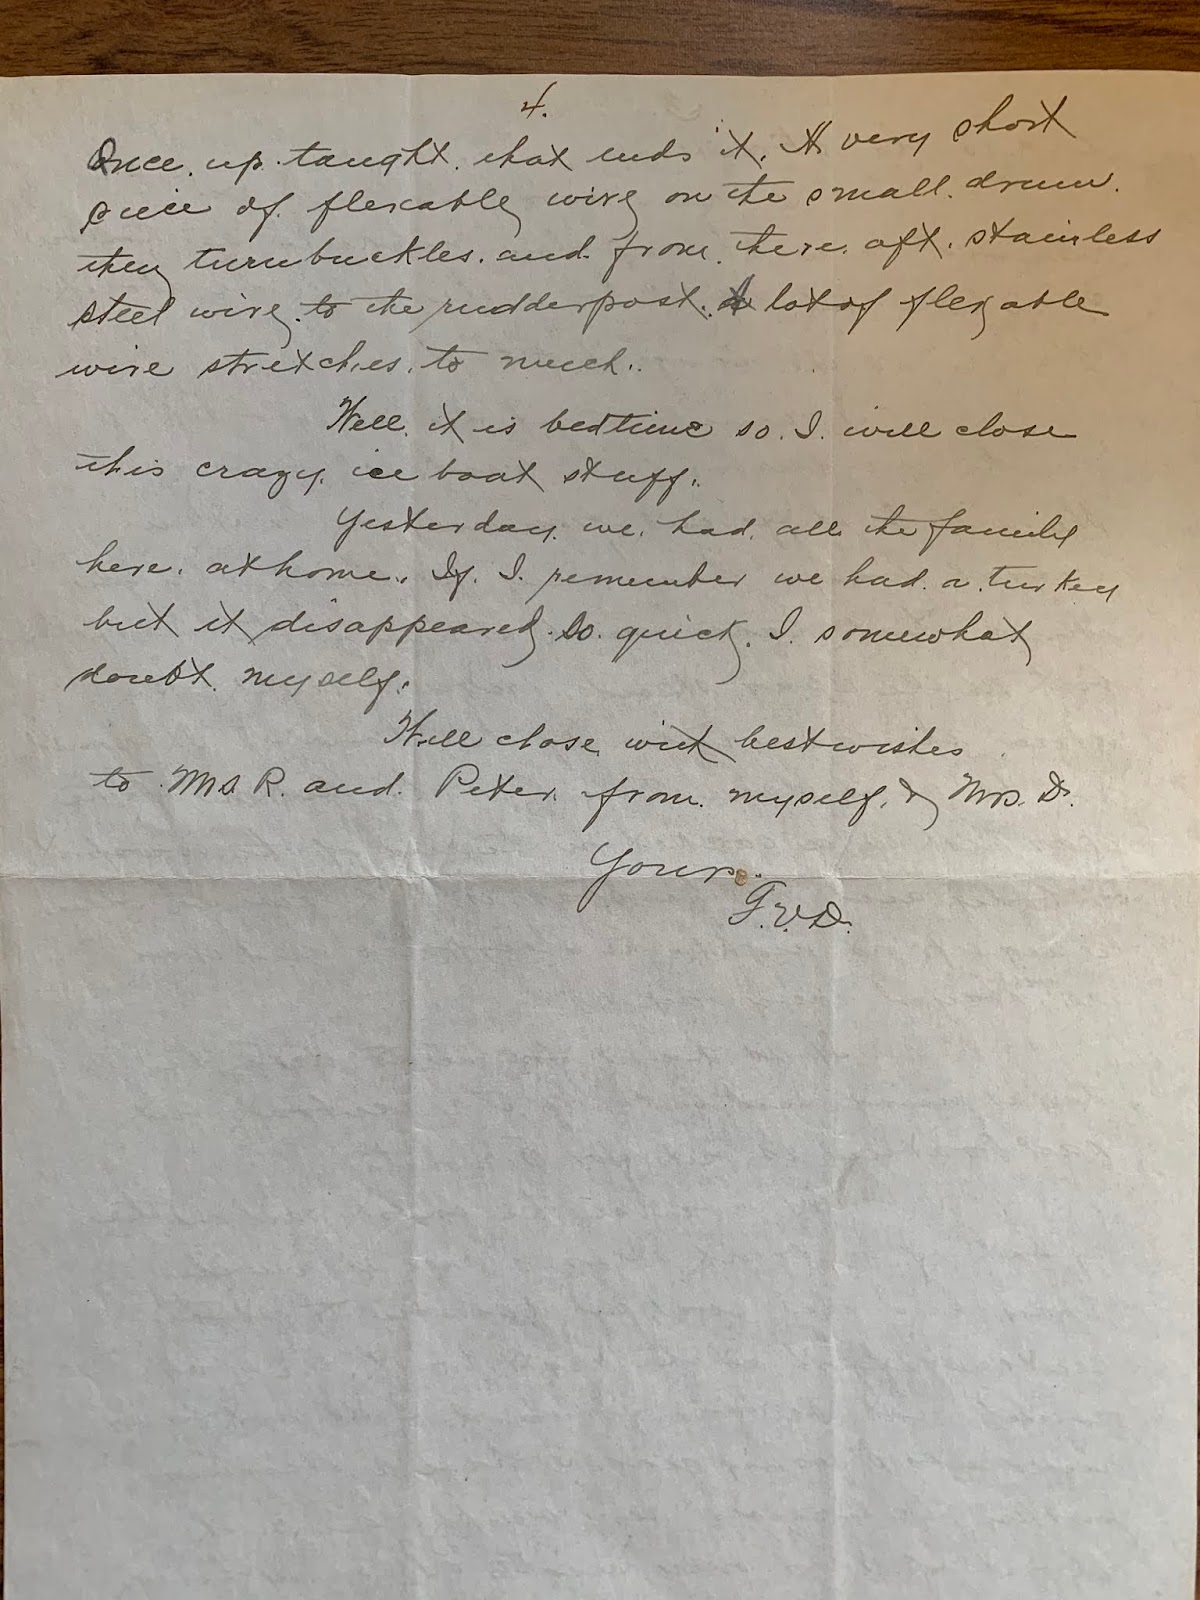 4.
Once. up. taught. that ends it. A very short
piece of. flexable wire on the small. drum.
then turnbuckles. and. from. there. aft. stainless
steel wire. to the rudderpost. A lot of flexable
wire stretches. to much..
Well. it is bedtime so. I. will close
this crazy. ice boat stuff.
Yesterday. we. had. all. the family
here. at home.. If. I. remember we had. a. turkey
but it disappeared. so. quick. I. somewhat
doubt. myself.
Will close with best wishes
to. Mrs R. and. Peter. from. myself. & Mrs. D.
Yours.
F.V.D.